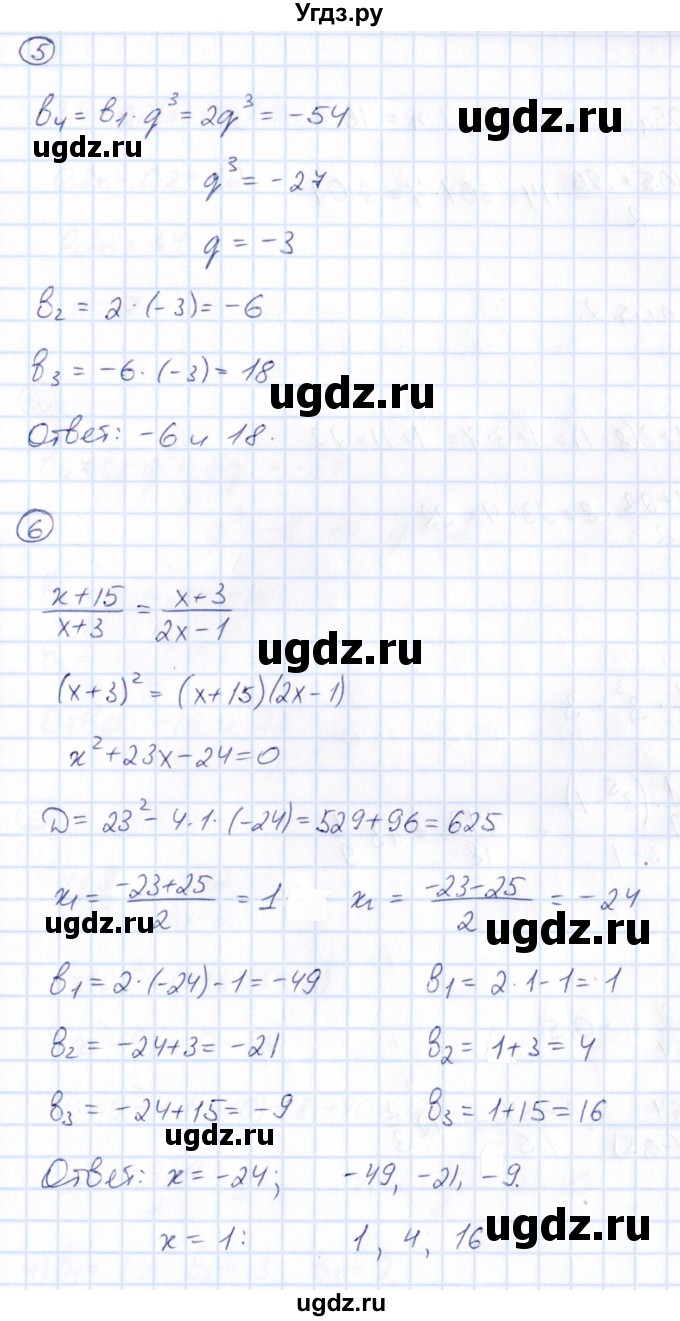 Угдз.ру
5
b₄ = b₁ · q³ = 2q³ = -54
ugdz.ru
ugdz.ru
q³ = -27
q = -3
b₂ = 2 · (-3) = -6
b₃ = -6 · (-3) = 18
ugdz.ru
Ответ: -6 и 18.
6
(x+15)/(x+3) = (x+3)/(2x-1)
ugdz.ru
(x+3)² = (x+15)(2x-1)
x² + 23x - 24 = 0
D = 23² - 4·1·(-24) = 529 + 96 = 625
x₁ = (-23+25)/2 = 1 x₂ = (-23-25)/2 = -24
ugdz.ru ugdz.ru
b₁ = 2·(-24) - 1 = -49 b₁ = 2·1 - 1 = 1
b₂ = -24+3 = -21 b₂ = 1+3 = 4
b₃ = -24+15 = -9 b₃ = 1+15 = 16
ugdz.ru
Ответ: x = -24; -49, -21, -9.
x = 1: 1, 4, 16
ugdz.ru
ugdz.ru